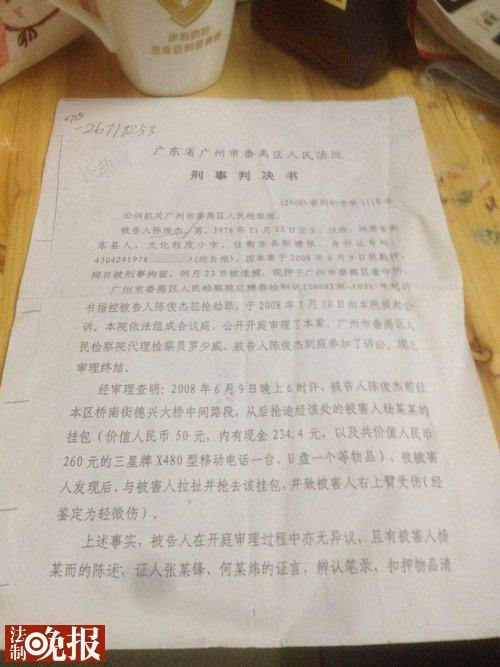 伊利奶粉
您身边的营养师
0755
-26718253
广东省广州市番禺区人民法院
刑事判决书
(2008)番刑初字第111号
公诉机关广州市番禺区人民检察院。
被告人陈俊杰,男,1978年11月23日出生,汉族,湖南省衡
东县人,文化程度小学,住衡东县新塘镇,身份证号码:
4304241978 )(均自报)。因本案于2008年6月9日被羁押,
同日被刑事拘留,同月23日被逮捕。现押于广州市番禺区看守所。
广州市番禺区人民检察院以穗番检刑诉(2008)第1931号起诉
书指控被告人陈俊杰犯抢劫罪,于2008年7月30日向本院提起公
诉。本院依法组成合议庭,公开开庭审理了本案。广州市番禺区人
民检察院代理检察员罗少威、被告人陈俊杰到庭参加了诉讼。现已
审理终结。
经审理查明:2008年6月9日晚上6时许,被告人陈俊杰前往
本区桥南街德兴大桥中间路段,从后抢途经该处的被害人杨某某的
挂包(价值人民币50元,内有现金234.4元,以及共价值人民币
260元的三星牌X480型移动电话一台、U盘一个等物品),被被害
人发现后,与被害人拉扯并抢去该挂包,并致被害人右上臂受伤(经
鉴定为轻微伤)。
上述事实,被告人在开庭审理过程中亦无异议,且有被害人杨
某而的陈述;证人张某锋、何某炜的证言,辨认笔录,扣押物品清
1
法制晚报